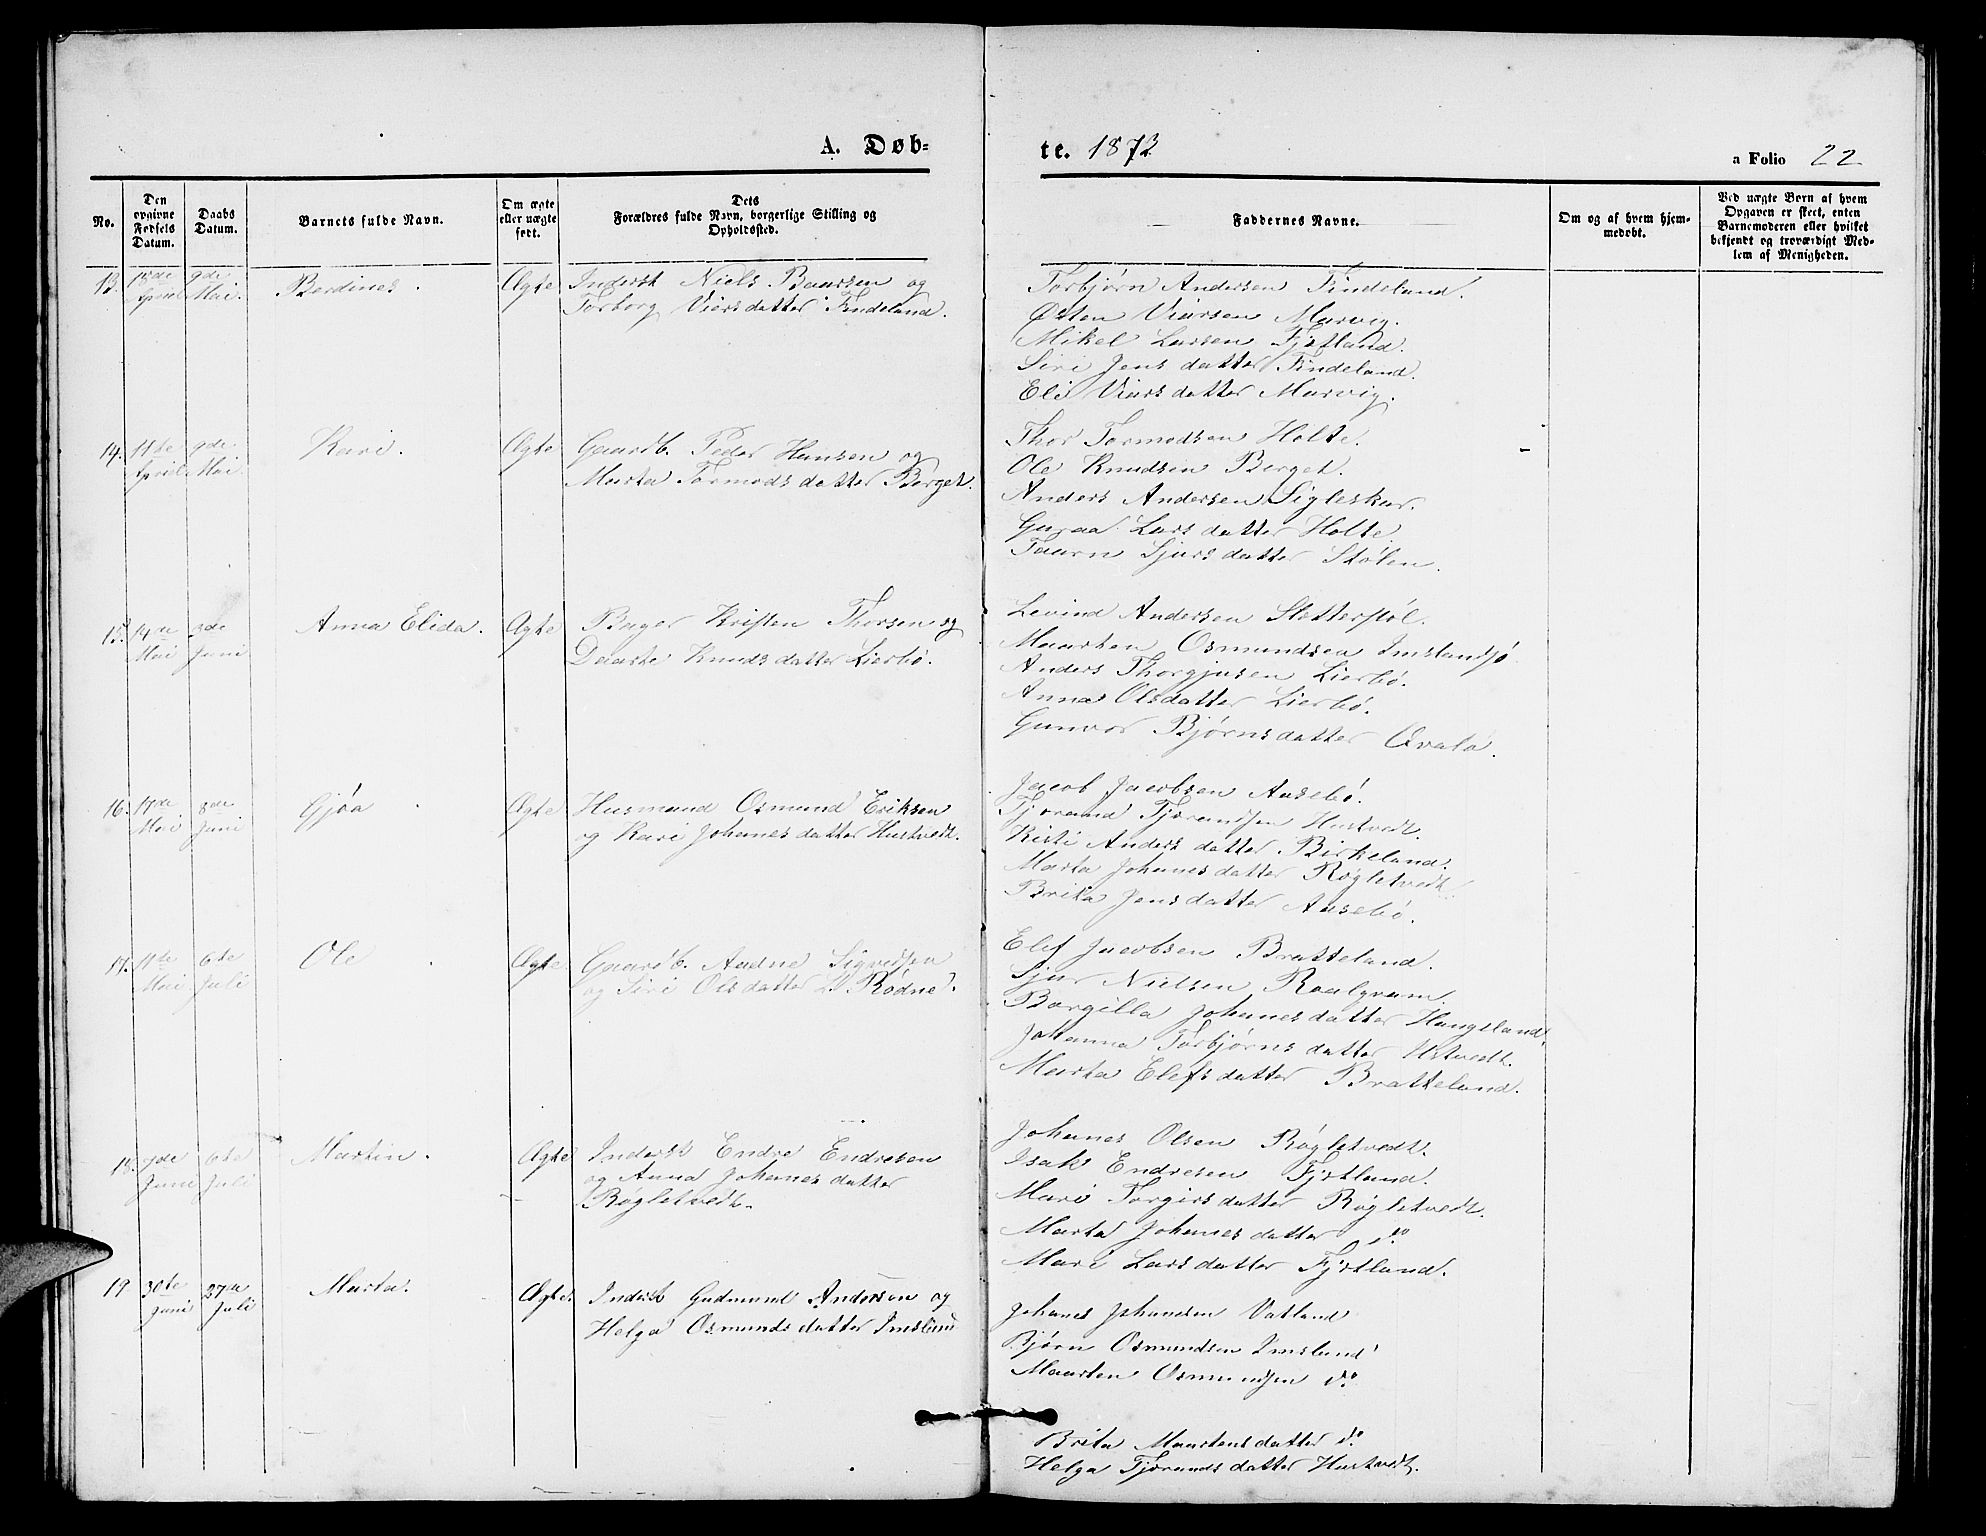 A. Døb-
te. 1873
a Folio 22
No.
Den opgivne Fødsels Datum.
Daabs Datum.
Barnets fulde Navn.
Om ægte eller uægte født.
Dets Forældres fulde Navn, borgerlige Stilling og Opholdssted.
Faddernes Navne.
Om og af hvem hjemmedøbt.
Ved uægte Børn af hvem Opgaven er skeet, enten Barnemoderen eller hvilket bekjendt og troværdigt Medlem af Menigheden.
13. 15de April 9de Mai. Berdines. Ægte Inderst Niels Baarsen og
Torborg Viersdatter Findeland.
Torbjørn Andersen Findeland.
Østen Viersen Marvig.
Mikel Larsen Fjetland.
Siri Jensdatter Findeland.
Eli Viersdatter Marvig.
14. 11te April 9de Mai Kari. Ægte Gaardb. Peder Hansen og
Marta Tormodsdatter Berget.
Thor Tormodsen Holte.
Ole Knudsen Berget.
Anders Andersen Sigleskar.
Guraa Larsdatter Holte.
Taarn Sjursdatter Stølen.
15. 14de Mai 3de Juni Anna Elida. Ægte Bager Kristen Thorsen og
Daarte Knudsdatter Lierbø.
Levind Andersen Sletterstøl.
Maarten Osmundsen Imslandsjø
Anders Thorgjusen Lierbø.
Anna Olsdatter Lierbø.
Gunvor Bjørnsdatter Qvalø.
16. 17de Mai 3de Juni Gjøa Ægte Husmand Osmund Eriksen
og Kari Johanesdatter Hustvedt.
Jacob Jacobsen Ausebø.
Tjerand Tjerandsen Hustvedt.
Kisti Andersdatter Birkeland.
Marta Johanesdatter Røgletvedt
Brita Jensdatter Ausebø.
17. 11te Mai 6te Juli Ole Ægte. Gaardb. Audne Sigvedsen
og Siri Olsdatter L. Rødne.
Elef Jacobsen Bratteland.
Sjur Nielsen Raalgram.
Borgilla Johanesdatter Haugsland.
Johanna Torbjørnsdatter Ustvedt.
Marta Elefsdatter Bratteland.
18. 7de Juni 6te Juli Martin. Ægte Inderst Endre Endresen
og Anna Johanesdatter
Røgletvedt.
Johanes Olsen Røgletvedt.
Isak Endresen Fjetland.
Mari Torgirsdatter Røgletvedt.
Marta Johanesdatter do
Mari Larsdatter Fjetland.
19 30te Juni 27de Juli Marta. Ægte. Inderst Gudmund Andersen og
Helga Osmundsdatter Imsland
Johanes Johannesen Vatland
Bjørn Osmundsen Imsland
Maarten Osmundsen do
Brita Maartensdatter do
Helga Tjerandsdatter Hustvedt.